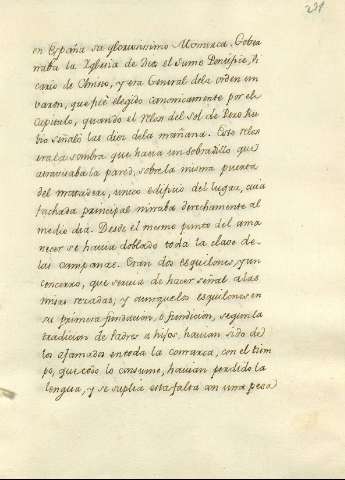 231
en España su gloriosissimo Monarca. Gober
naba la Yglesia de Dios el Sumo Pontifice, Vi
cario de Christo, y era General dela orden un
varon, que fuè elegido canonicamente por el
Capitulo, quando el relox del sol de Pero Ru
bio señalò las diez dela mañana. Este relox
era la sombra que hacia un sobradillo que
atravesaba la pared, sobre la misma puerta
del matadero, unico edificio del lugar, cuia
fachada principal miraba derechamente al
medio dia. Desde el mismo punto del ama
necer se havia doblado toda la clave de
las campanas. Eran dos esquilones, y un
cencerro, que servia de hacer señal a las
misas rezadas; y aunque los esquilones en
su primera fundacion, o fundicion, segun la
tradicion de Padres a hijos, havian sido de
los afamados en toda la comarca, con el tiem
po, que todo lo consume, havian perdido la
lengua, y se suplia esta falta con una pesa